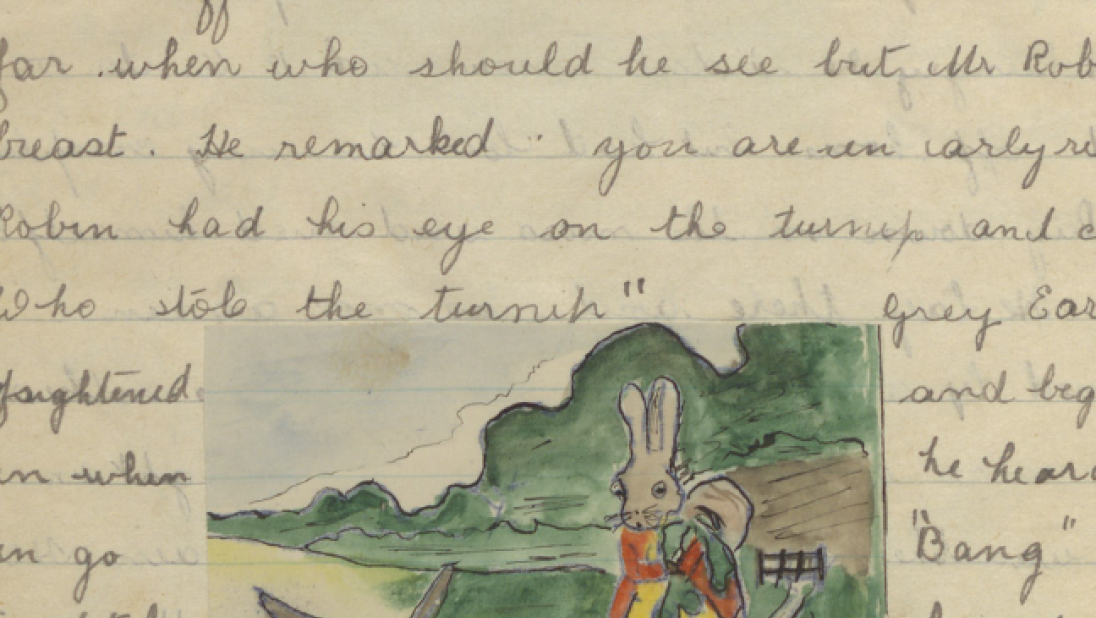 far . when who should he see but Mr Rob
breast . He remarked " you are un early ri
Robin had his eye on the turnip and c
Who stole the turnip" Grey Ear
fsightened and beg
in when he hear
an go "Bang"